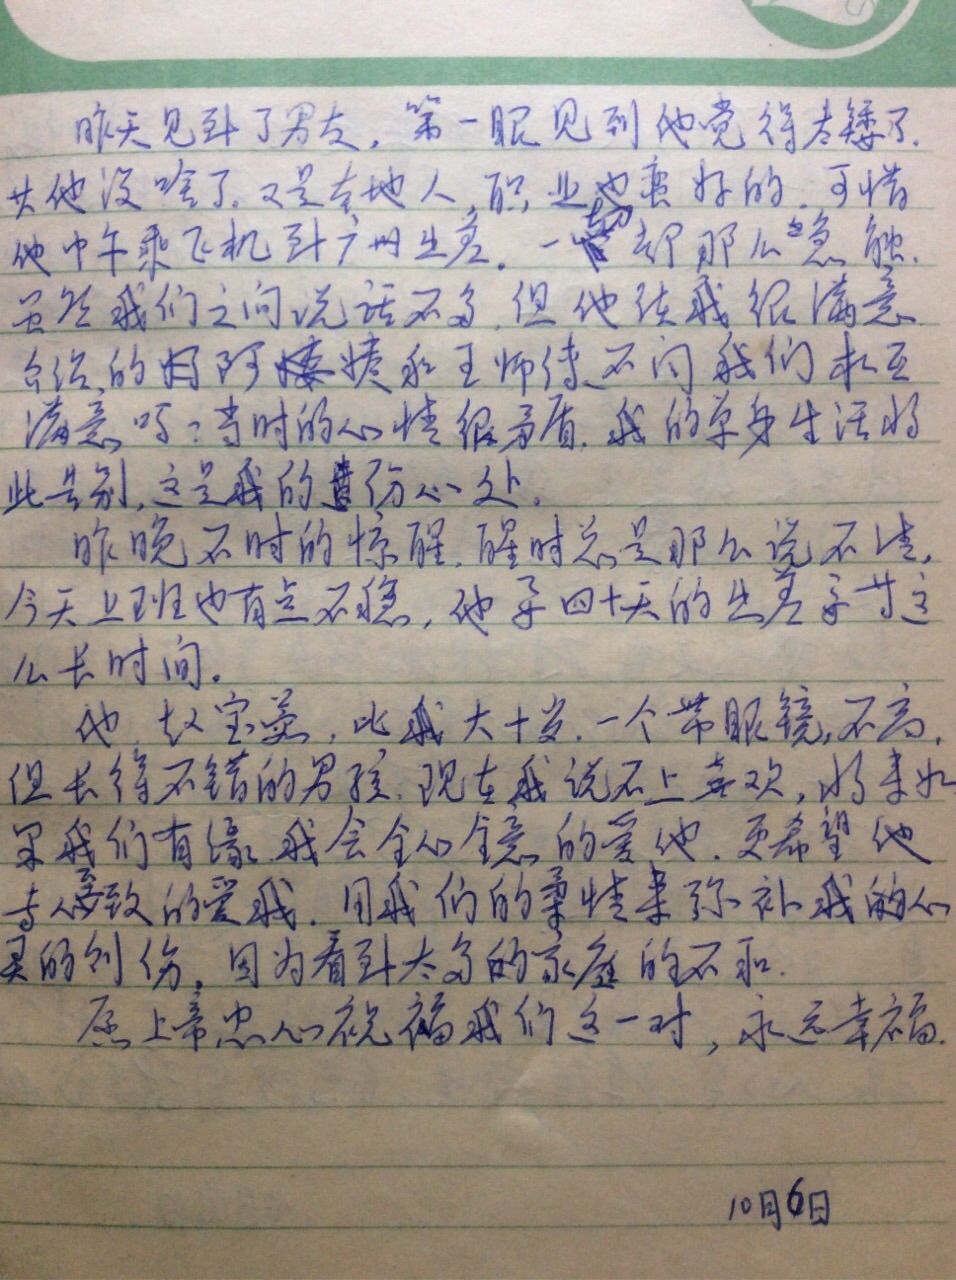 昨天见到了男友,第一眼见到他觉得太矮了.
其他没啥了.又是本地人,职业也蛮好的.可惜
他中午乘飞机到广州出差.一切却那么急触.
虽然我们之间说话不多,但他待我很满意.
介绍的阿姨和王师傅不问我们相互
满意吗?当时的心情很矛盾.我的单身生活将
此告别,这是我的伤心处.
昨晚不时的惊醒.醒时总是那么说不清.
今天上班也有点不稳,他要四十天的出差要
么长时间。
他,赵宝,比我大十岁.一个带眼镜,不高,
但长得不错的男孩.现在我说不上喜欢,将来如
果我们有缘,我会全心全意的爱他.更希望他
专心致的爱我.用我们的柔情来弥补我的心
灵的创伤,因为看到太多的家庭的不和.
愿上帝忠心祝福我们这一对,永远幸福.
10月6日